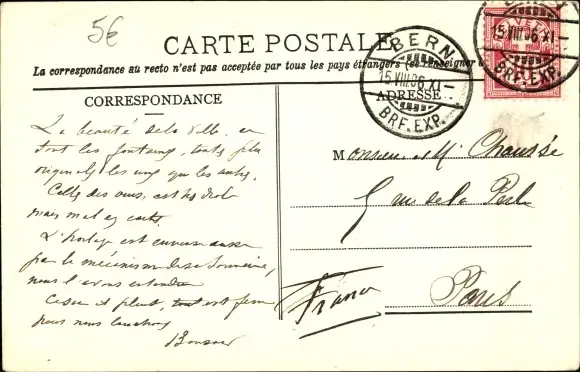 5€
CARTE POSTALE
La correspondance au recto n'est pas acceptée par tous les pays étrangers (se renseigner
BERN
15.VIII.06.XI–
BRF. EXP.
HELVETIA
15.VIII.06.XI–
BRF. EXP.
CORRESPONDANCE
ADRESSE
La beauté de la ville, en
tout les fontaines, toutes plus
originales les unes que les autres.
Celle des ours, est très drole
mais mal en carte.
L'horloge est curieuse aussi
par le mécanisme de sa sonnerie,
nous l'avons entendue
Ce soir il pleut, tout est
nous nous couchons
Bonsoir
Monsieur et Me Chaussée
5 rue de la Perle
Paris
France